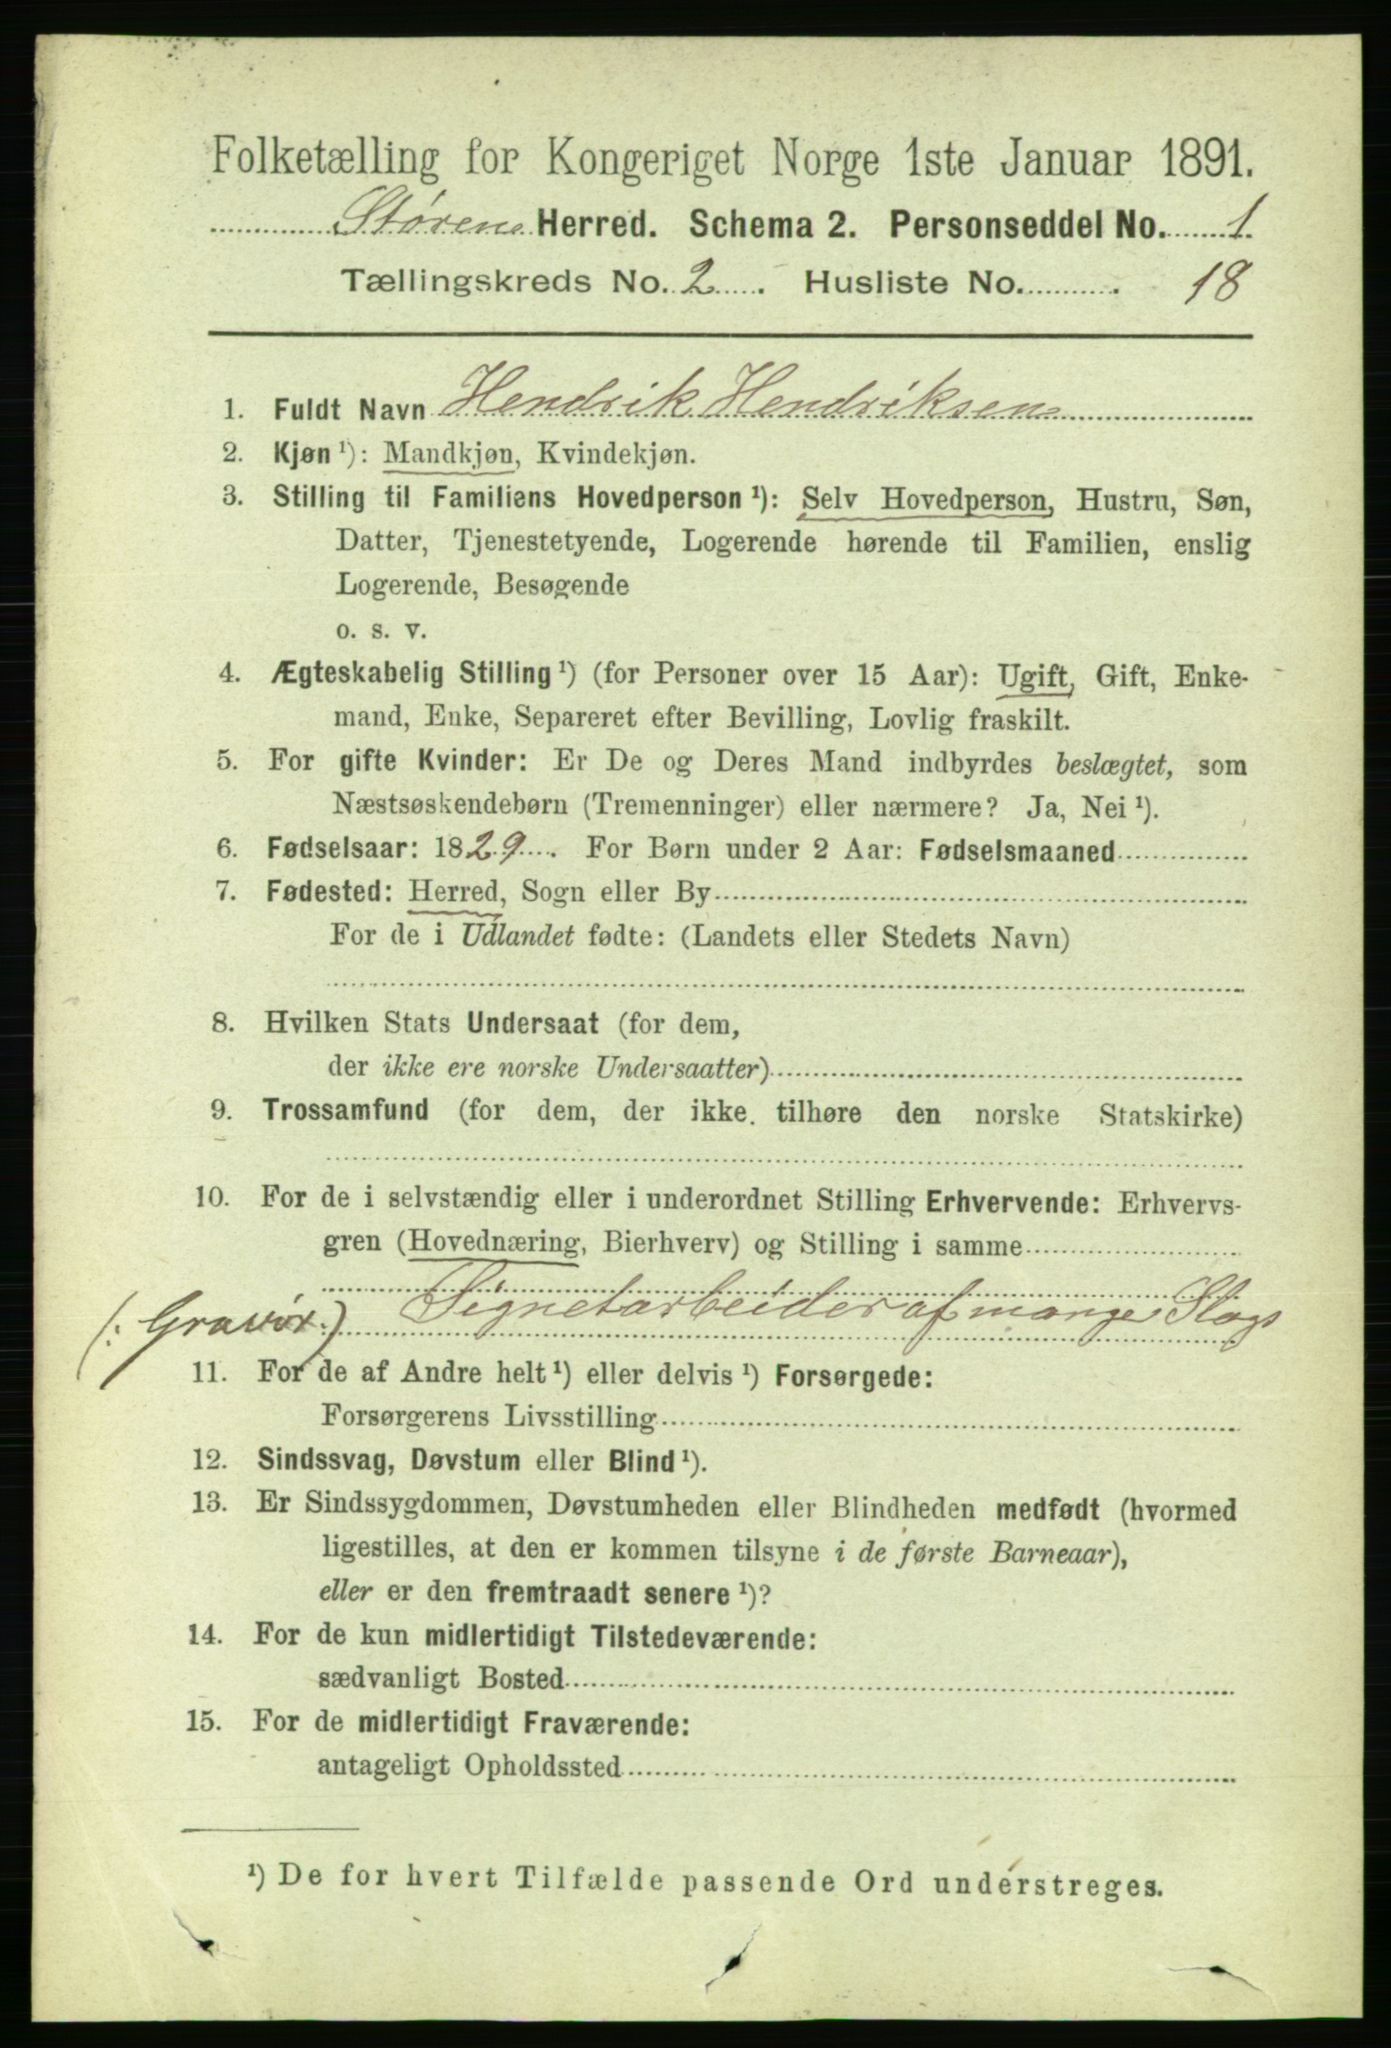 Folketælling for Kongeriget Norge 1ste Januar 1891.
Støren Herred. Schema 2. Personseddel No. 1.
Tællingskreds No. 2. Husliste No. 18
1. Fuldt Navn Hendrik Hendriksen
2. Kjøn ¹): Mandkjøn, Kvindekjøn.
3. Stilling til Familiens Hovedperson ¹): Selv Hovedperson, Hustru, Søn,
Datter, Tjenestetyende, Logerende hørende til Familien, enslig
Logerende, Besøgende
o. s. v.
4. Ægteskabelig Stilling ¹) (for Personer over 15 Aar): Ugift, Gift, Enke-
mand, Enke, Separeret efter Bevilling, Lovlig fraskilt.
5. For gifte Kvinder: Er De og Deres Mand indbyrdes beslægtet, som
Næstsøskendebørn (Tremenninger) eller nærmere? Ja, Nei ¹).
6. Fødselsaar: 1829. For Børn under 2 Aar: Fødselsmaaned
7. Fødested: Herred, Sogn eller By
For de i Udlandet fødte: (Landets eller Stedets Navn)
8. Hvilken Stats Undersaat (for dem,
der ikke ere norske Undersaatter)
9. Trossamfund (for dem, der ikke. tilhøre den norske Statskirke)
10. For de i selvstændig eller i underordnet Stilling Erhvervende: Erhvervs-
gren (Hovednæring, Bierhverv) og Stilling i samme
(: Gravør.) Signetarbeider af mange Slags
11. For de af Andre helt ¹) eller delvis ¹) Forsørgede:
Forsørgerens Livsstilling
12. Sindssvag, Døvstum eller Blind ¹).
13. Er Sindssygdommen, Døvstumheden eller Blindheden medfødt (hvormed
ligestilles, at den er kommen tilsyne i de første Barneaar),
eller er den fremtraadt senere ¹)?
14. For de kun midlertidigt Tilstedeværende:
sædvanligt Bosted
15. For de midlertidigt Fraværende:
antageligt Opholdssted
¹) De for hvert Tilfælde passende Ord understreges.